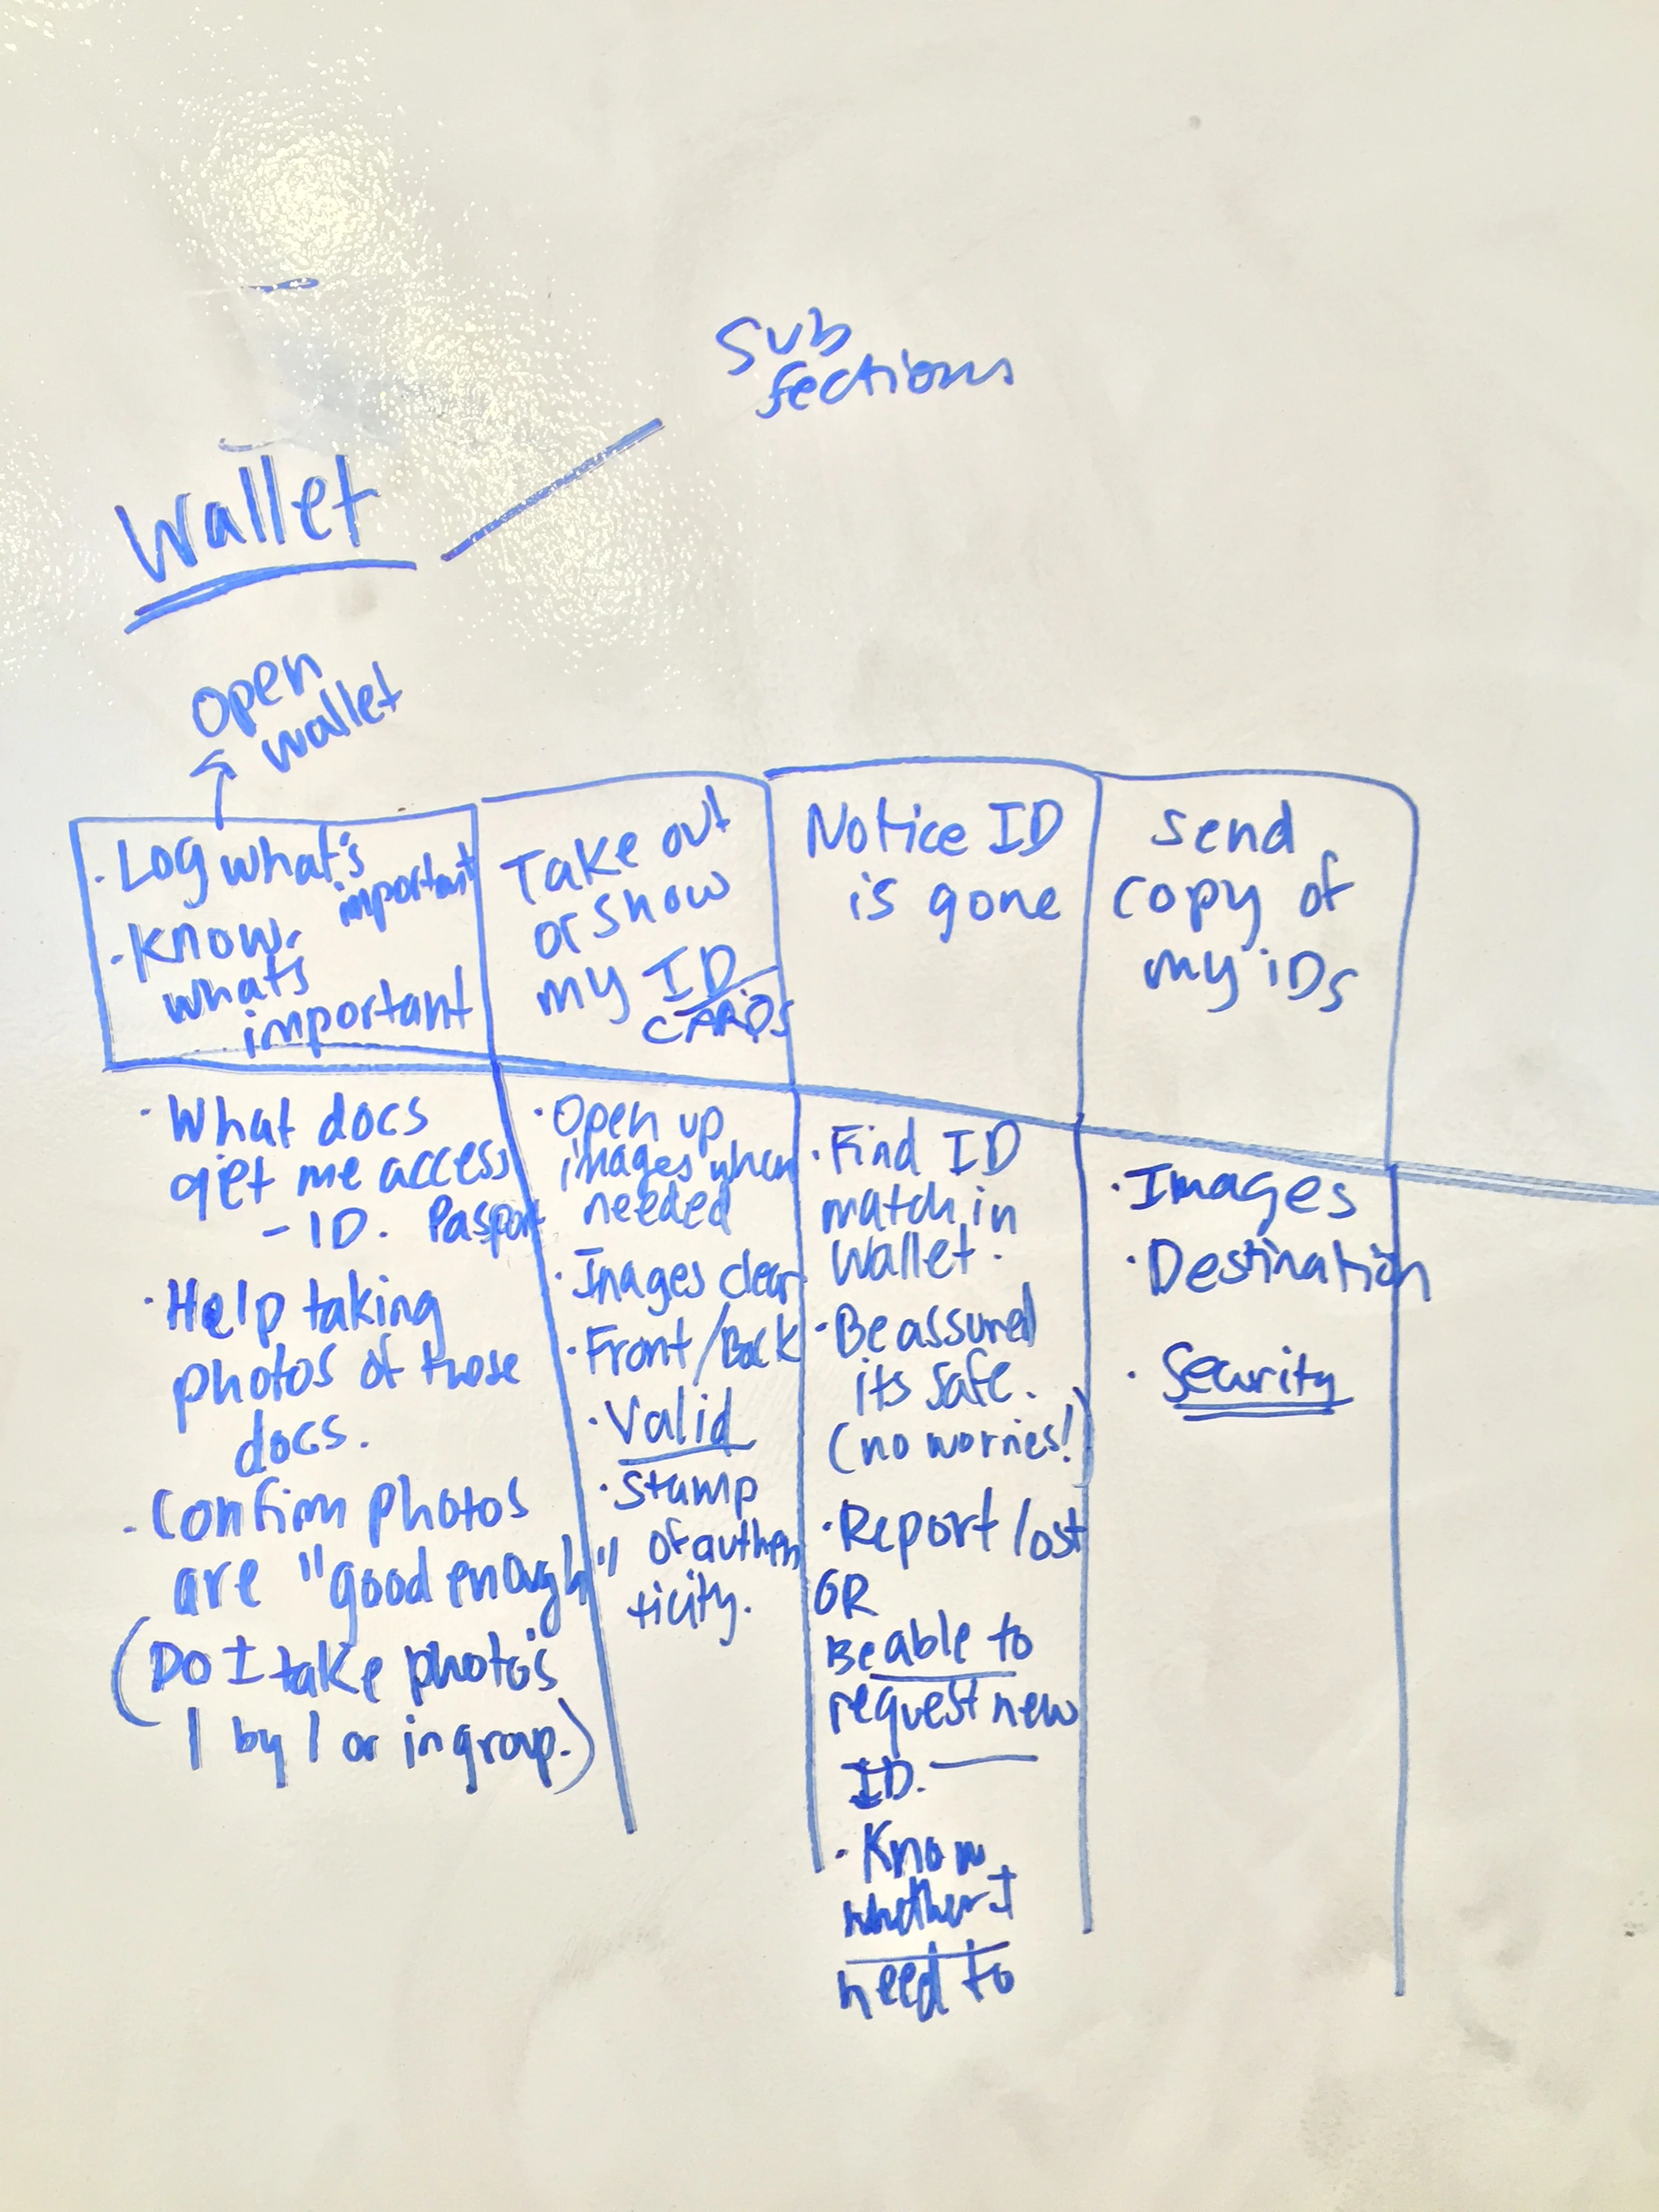 Sub
Sections
Wallet
Open
wallet
· Log what's
important
· Know
whats
important
Take out
or show
my ID
CARDS
Notice ID
is gone
Send
copy of
my iDs
· What docs
get me access
- ID. Pasport
· Help taking
photos of those
docs.
· Confirm photos
are "good enough"
(Do I take photo's
1 by 1 or in group.)
· Open up
images when
needed
· Images clear
· Front/Back
· Valid
· Stamp
of authen
ticity.
· Find ID
match in
Wallet.
· Be assured
its safe.
(no worries!)
· Report lost
OR
Be able to
request new
ID.
· Know
whether I
need to
· Images
· Destination
· Security